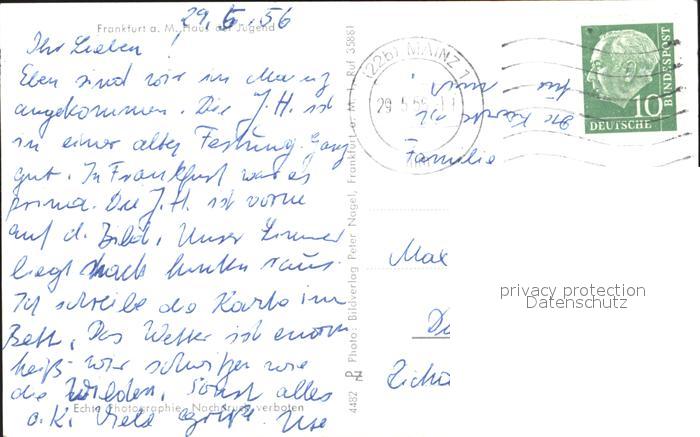 29.5.56
Frankfurt a. M. Haus der Jugend
Ihr Lieben!
Eben sind wir in Mainz
angekommen. Die J.H. ist
in einer alten Festung. Ganz
gut. In Frankfurt war es
prima. Die J.H. ist vorne
auf d. Bild. Unser Zimmer
liegt nach hinten raus.
Ich schreibe die Karte im
Bett. Das Wetter ist enorm
heiß wir schwitzen wie
die Wilden. Sonst alles
o.K. Viele Grüße. Ute
Echte Photographie Nachdruck verboten
4482 P Photo: Bildverlag Peter Nagel, Frankfurt a. M. 1, Ruf 35881
(22b) MAINZ 1
29.5.56
DEUTSCHE
BUNDESPOST
10
Die Karte ist
für
Familie
Max
privacy protection
Datenschutz